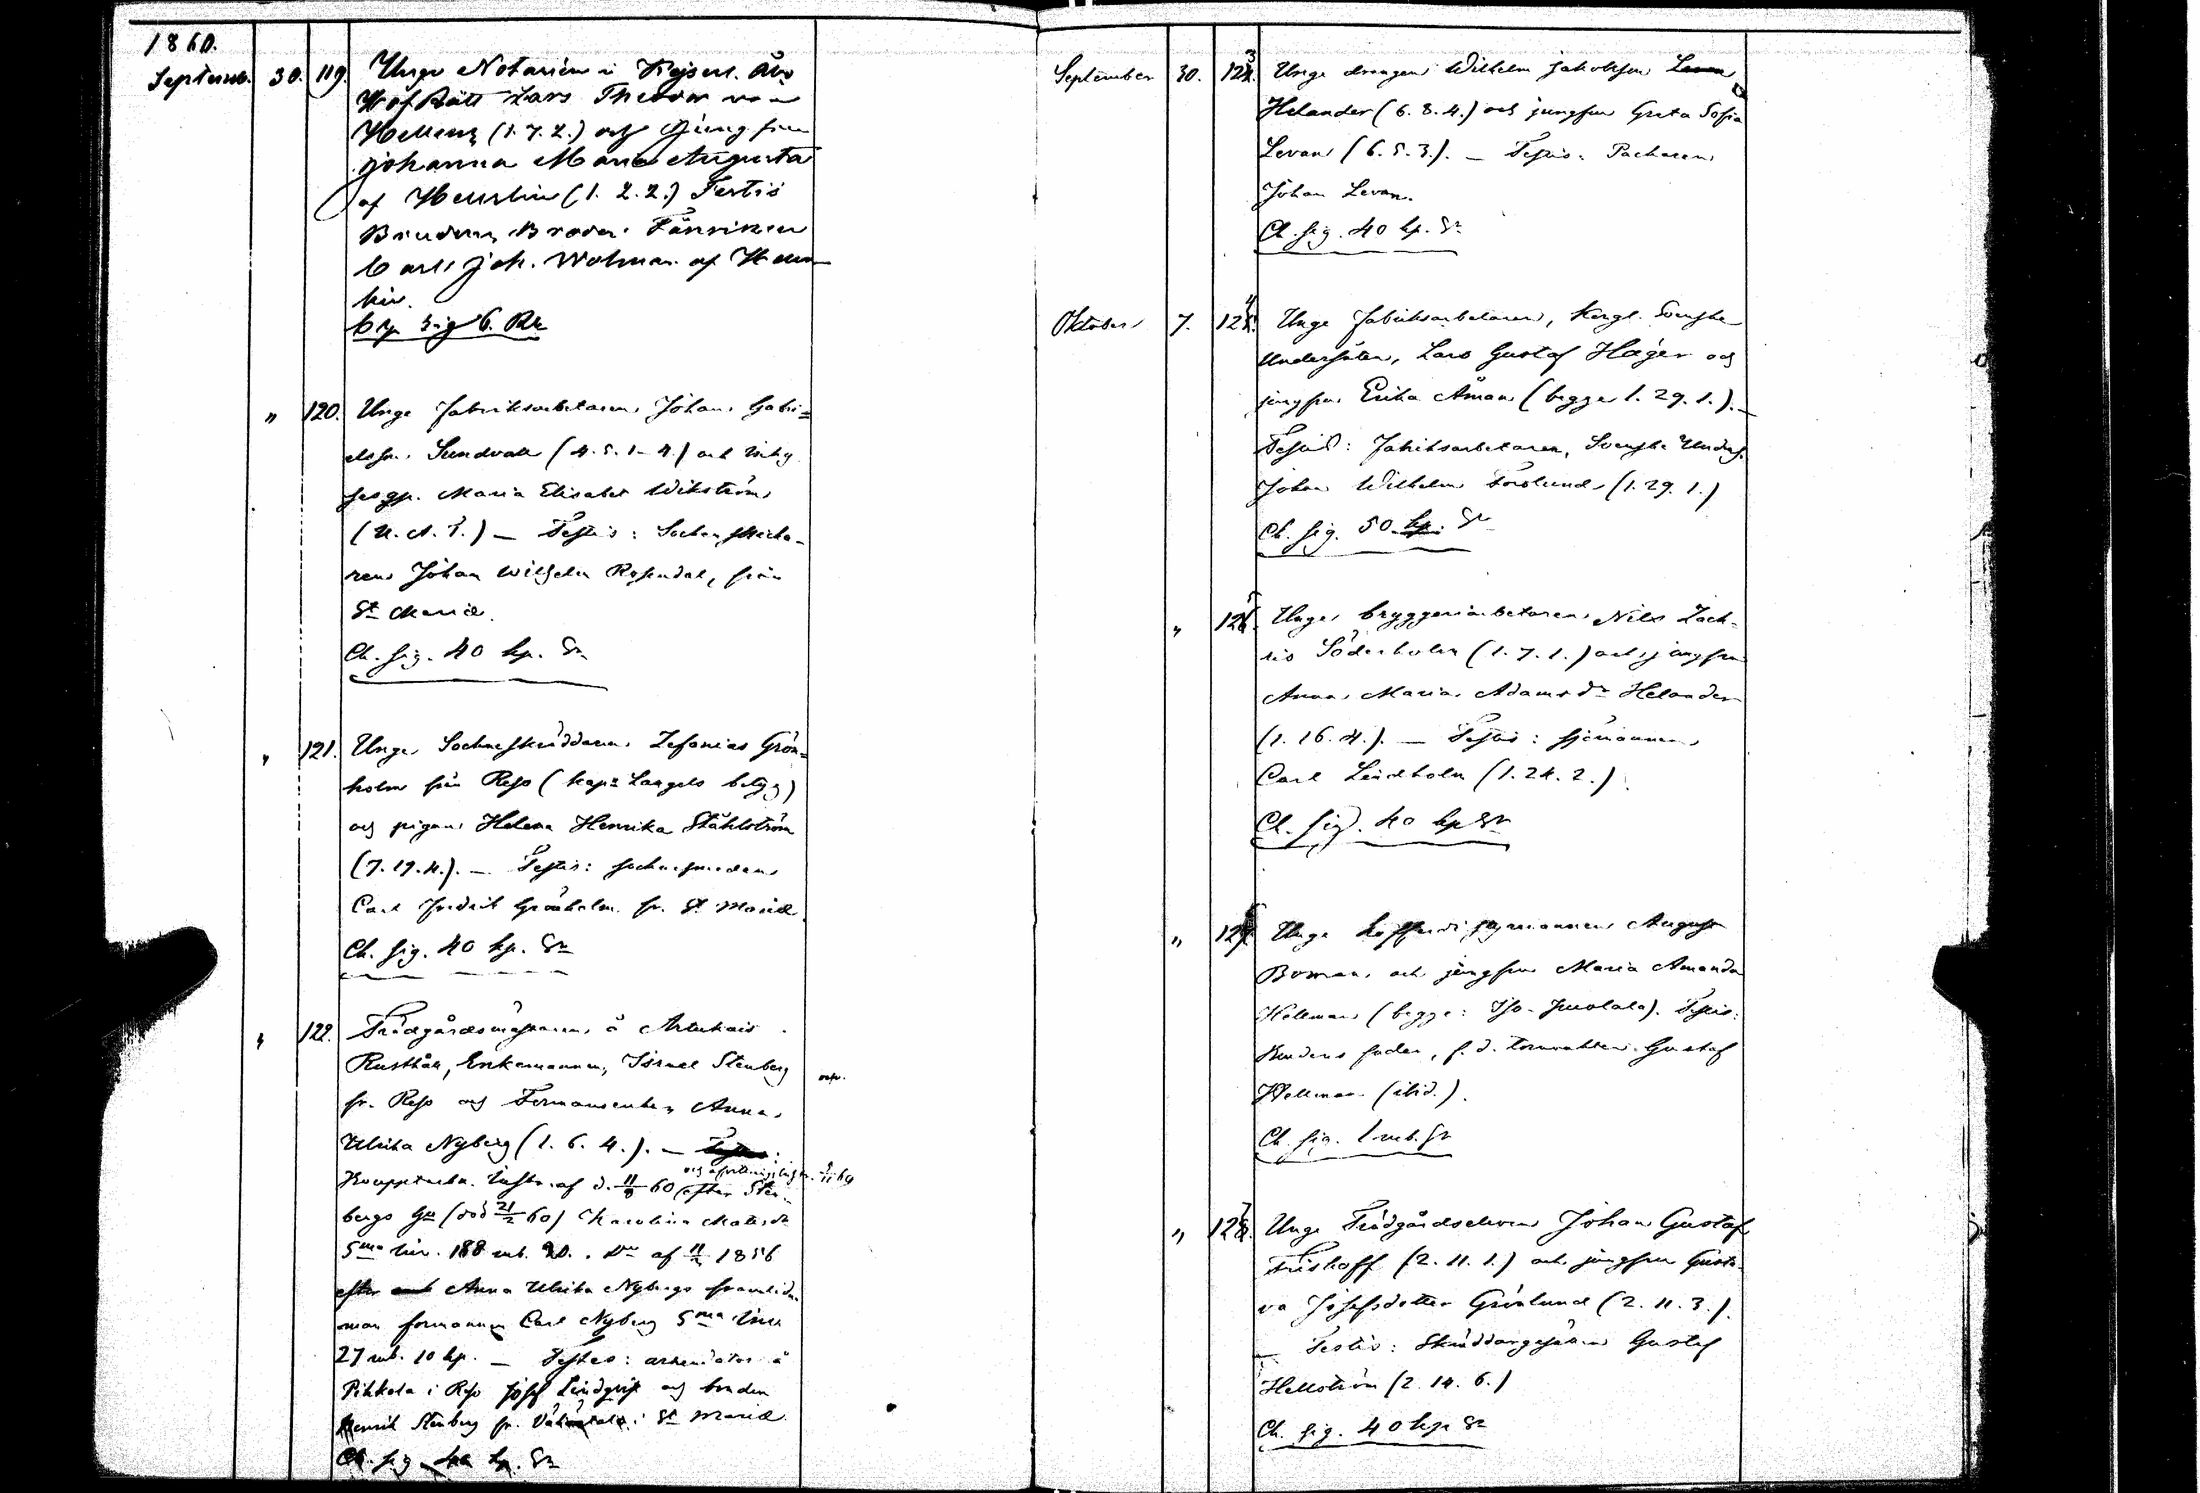 1860.
Septemb. 30. 119. Unge Notarien i Kejserl. Åbo
Hof Rätt Lars Theodor von
Hellens (1.7.2.) och Jungfru
Johanna Maria Augusta
af Heurlin (1.2.2.) Testis
Brudens Broder Fänriken
Carl Joh. Wolmar af Heur-
lin.
Ch. sig 6. Rb.
" 120. Unge Fabriksarbetaren Johan Gabri=
elsson Sundvall (4.5.1-4.) och
Maria Elisabet Wikström
(U.A.1.) — Testis: Sockenskräda-
ren Johan Wilhelm Rosendal, från
St Mariæ.
Ch. sig. 40 kp. Sr
" 121. Unge Sockneskräddaren Zefanias Grön=
holm från Reso (kapn Langels betyg)
och pigan Helena Henrika Ståhlström
(7.19.4.). — Testis: sockensmeden
Carl Fredrik Grönholm fr. St Mariæ
Ch. sig. 40 kp. Sr
" 122. Trädgårdsmästaren å Artukais
Rusthåll, Enkemannen, Israel Stenberg
fr. Reso och Formansenkan Anna
Ulrika Nyberg (1.6.4.). — Testes:
af d. 11/9 60 efter Sten-
bergs Hu (död 21/2 60) Karolina Matsdr
5ma 188 rub. 20. Du af 1856
efter Anna Ulrika Nybergs framlidne
man formannen Carl Nyberg 5ma
27 rub. 10 kp. — Testes: arrendator å
Pikkola i Reso Josef Lindqvist och bonden
Henrik Stenberg fr. i St Mariæ
Ch. sig 40 kp. Sr
September 30. 123. Unge drängen Wilhelm Jakobsson Levan
Helander (6.8.4.) och jungfru Greta Sofia
Levan (6.5.3.). — Testis: Packaren
Johan Levan.
Ch. sig. 40 kp. Sr
Oktober 7. 124. Unge fabriksarbetaren, Kongl. Svenske
Undersåten, Lars Gustaf Häger och
jungfru Erika Åman (begge 1.29.1.). —
Testis: Fabriksarbetaren, Svenske Unders.
Johan Wilhelm Forslund (1.29.1.)
Ch. sig. 50 kp. Sr
" 125. Unge bryggeriarbetaren Nils Zach-
ris Söderholm (1.7.1.) och jungfru
Anna Maria Adamsdr Helander
(1.16.4.). — Testis: sjömannen
Carl Lindholm (1.24.2.).
Ch. sig. 40 kp Sr
" 126. Unge koffardi styrmannen August
Boman och jungfru Maria Amanda
Hellman (begge: Iso-Juolala). Testis:
Brudens fader, f.d. tornväktaren Gustaf
Hellman (ibid.).
Ch. sig. 1 rub. Sr
" 127. Unge Trädgårdseleven Johan Gustaf
Friskoff (2.11.1.) och jungfru Gusta-
va Josefsdotter Grönlund (2.11.3.).
— Testis: Skräddargesällen Gustaf
Hellström (2.14.6.)
Ch. sig. 40 kp. Sr